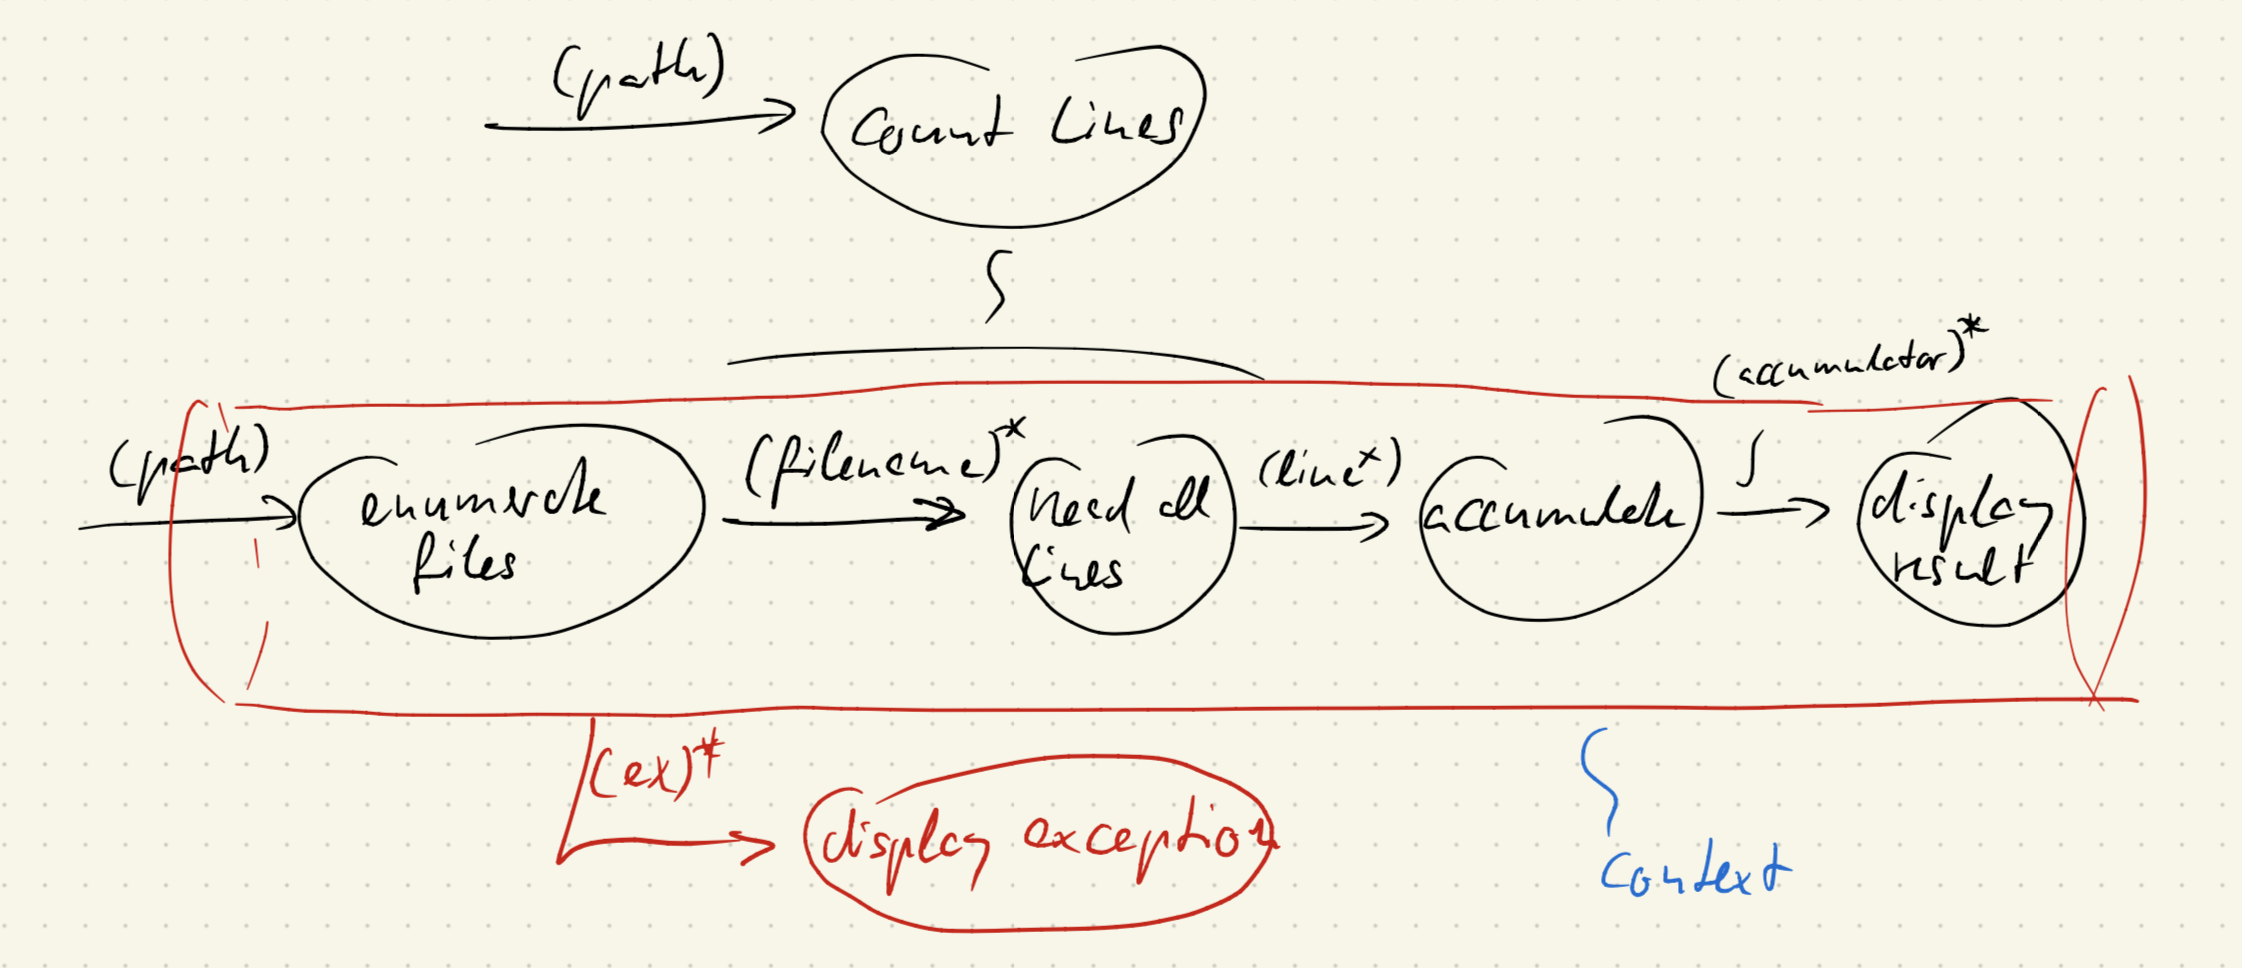 (path)
Count Lines
(accumulator)*
(path)
enumerate
files
(filename)*
read all
lines
(line*)
accumulate
display
result
(ex)*
display exception
context